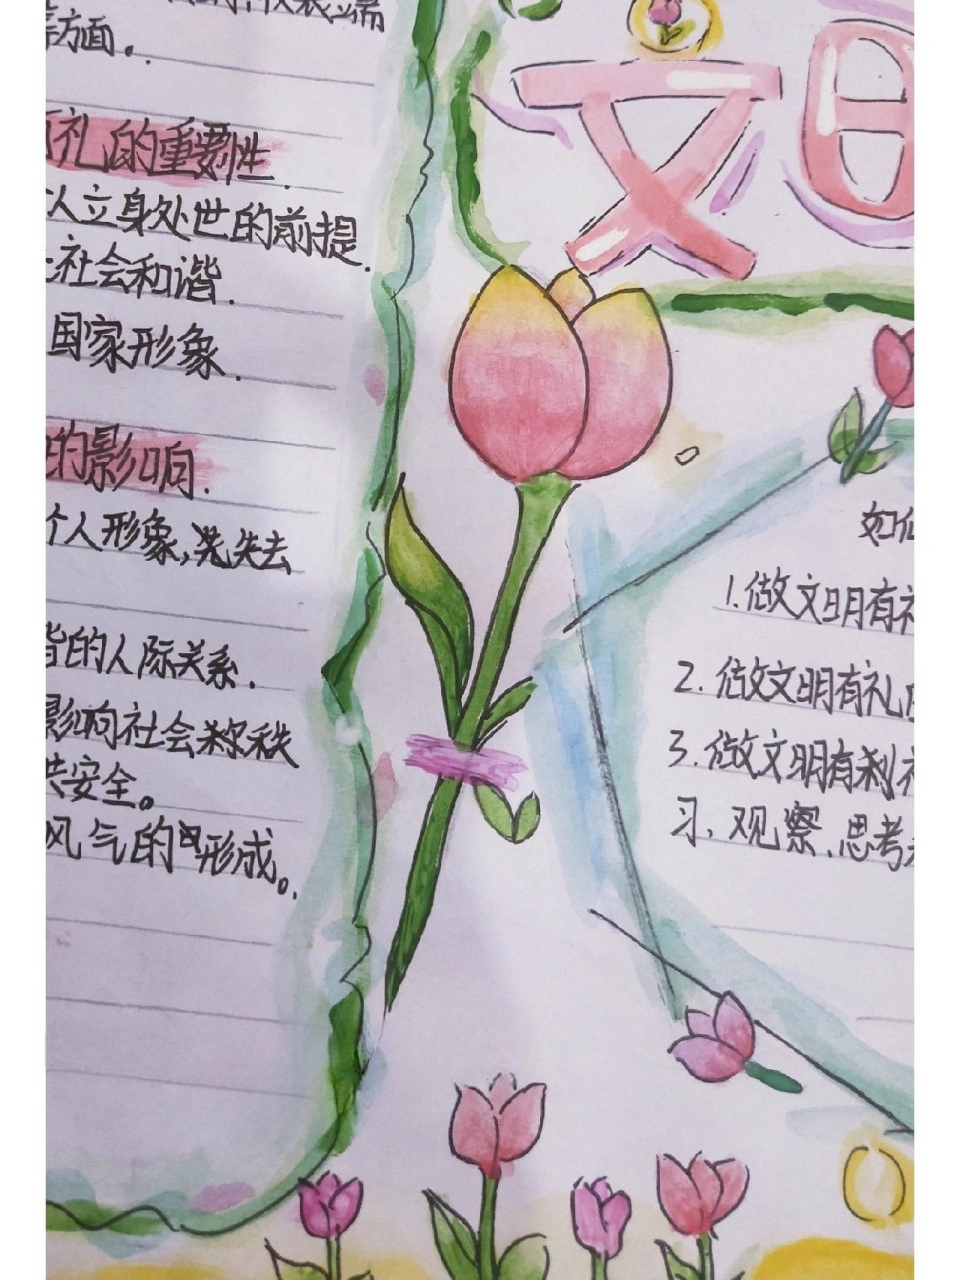 文明
等方面。
有礼的重要性.
人立身处世的前提.
社会和谐.
国家形象.
的影响.
个人形象,失去
谐的人际关系.
影响社会秩
共安全。
风气的形成。
如何
1.做文明有礼
2.做文明有礼
3.做文明有礼
习、观察、思考